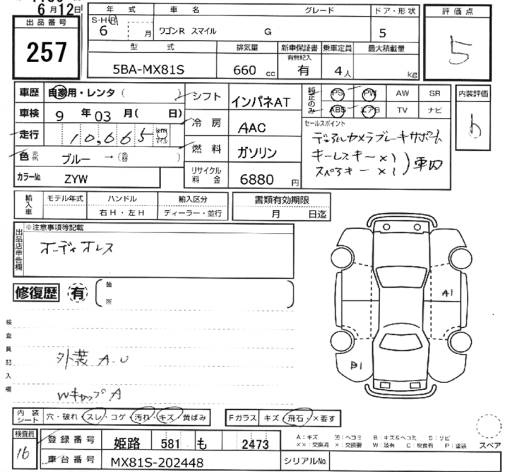 6月12日
出品番号
257
年式
車名
グレード
ドア・形状
S-H
6 月
ワゴンR スマイル
G
5
型式
排気量
新車保証書
有無記入
乗車定員
最大積載量
5BA-MX81S
660 cc
有
4人
kg
評価点
5
車歴 自家用・レンタ( )
車検 9年03月( 日)
走行 10,665 km
色 ブルー →( )
カラーNo ZYW
シフト インパネAT
冷房 AAC
燃料 ガソリン
リサイクル料金 6880 円
純正のみ
PS PW AW SR
ABS エアB TV ナビ
内装評価
b
セールスポイント
デュアルカメラブレーキサポート
キーレスキー×1
スペアキー×1
車内
輸入車
モデル年式
ハンドル
右H・左H
輸入区分
ディーラー・並行
書類有効期限
月 日迄
出品店申告欄
※注意事項等記載
ボーディオレス
修復歴 有
箇所
検査員記入欄
外装 A.U
WキャップA
A1
B1
内装シート
穴・破れ スレ コゲ 汚れ キズ 黄ばみ
Fガラス キズ 飛石 ×要す
検査員
16
登録番号 姫路 581 も 2473
車台番号 MX81S-202448
シリアルNo
スペア